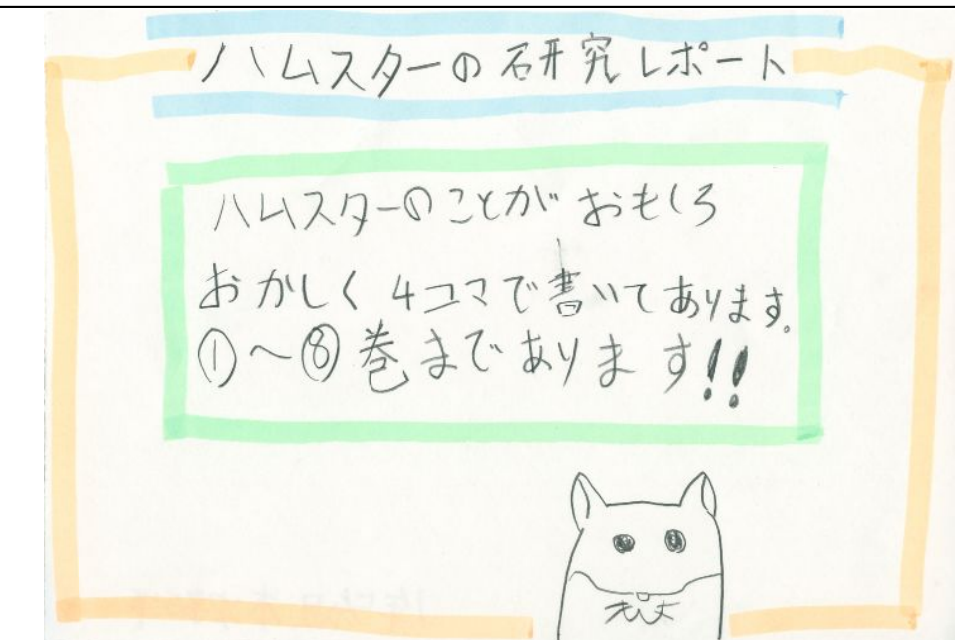 ハムスターの研究レポート
ハムスターのことがおもしろ
おかしく4コマで書いてあります。
①～⑧巻まであります!!